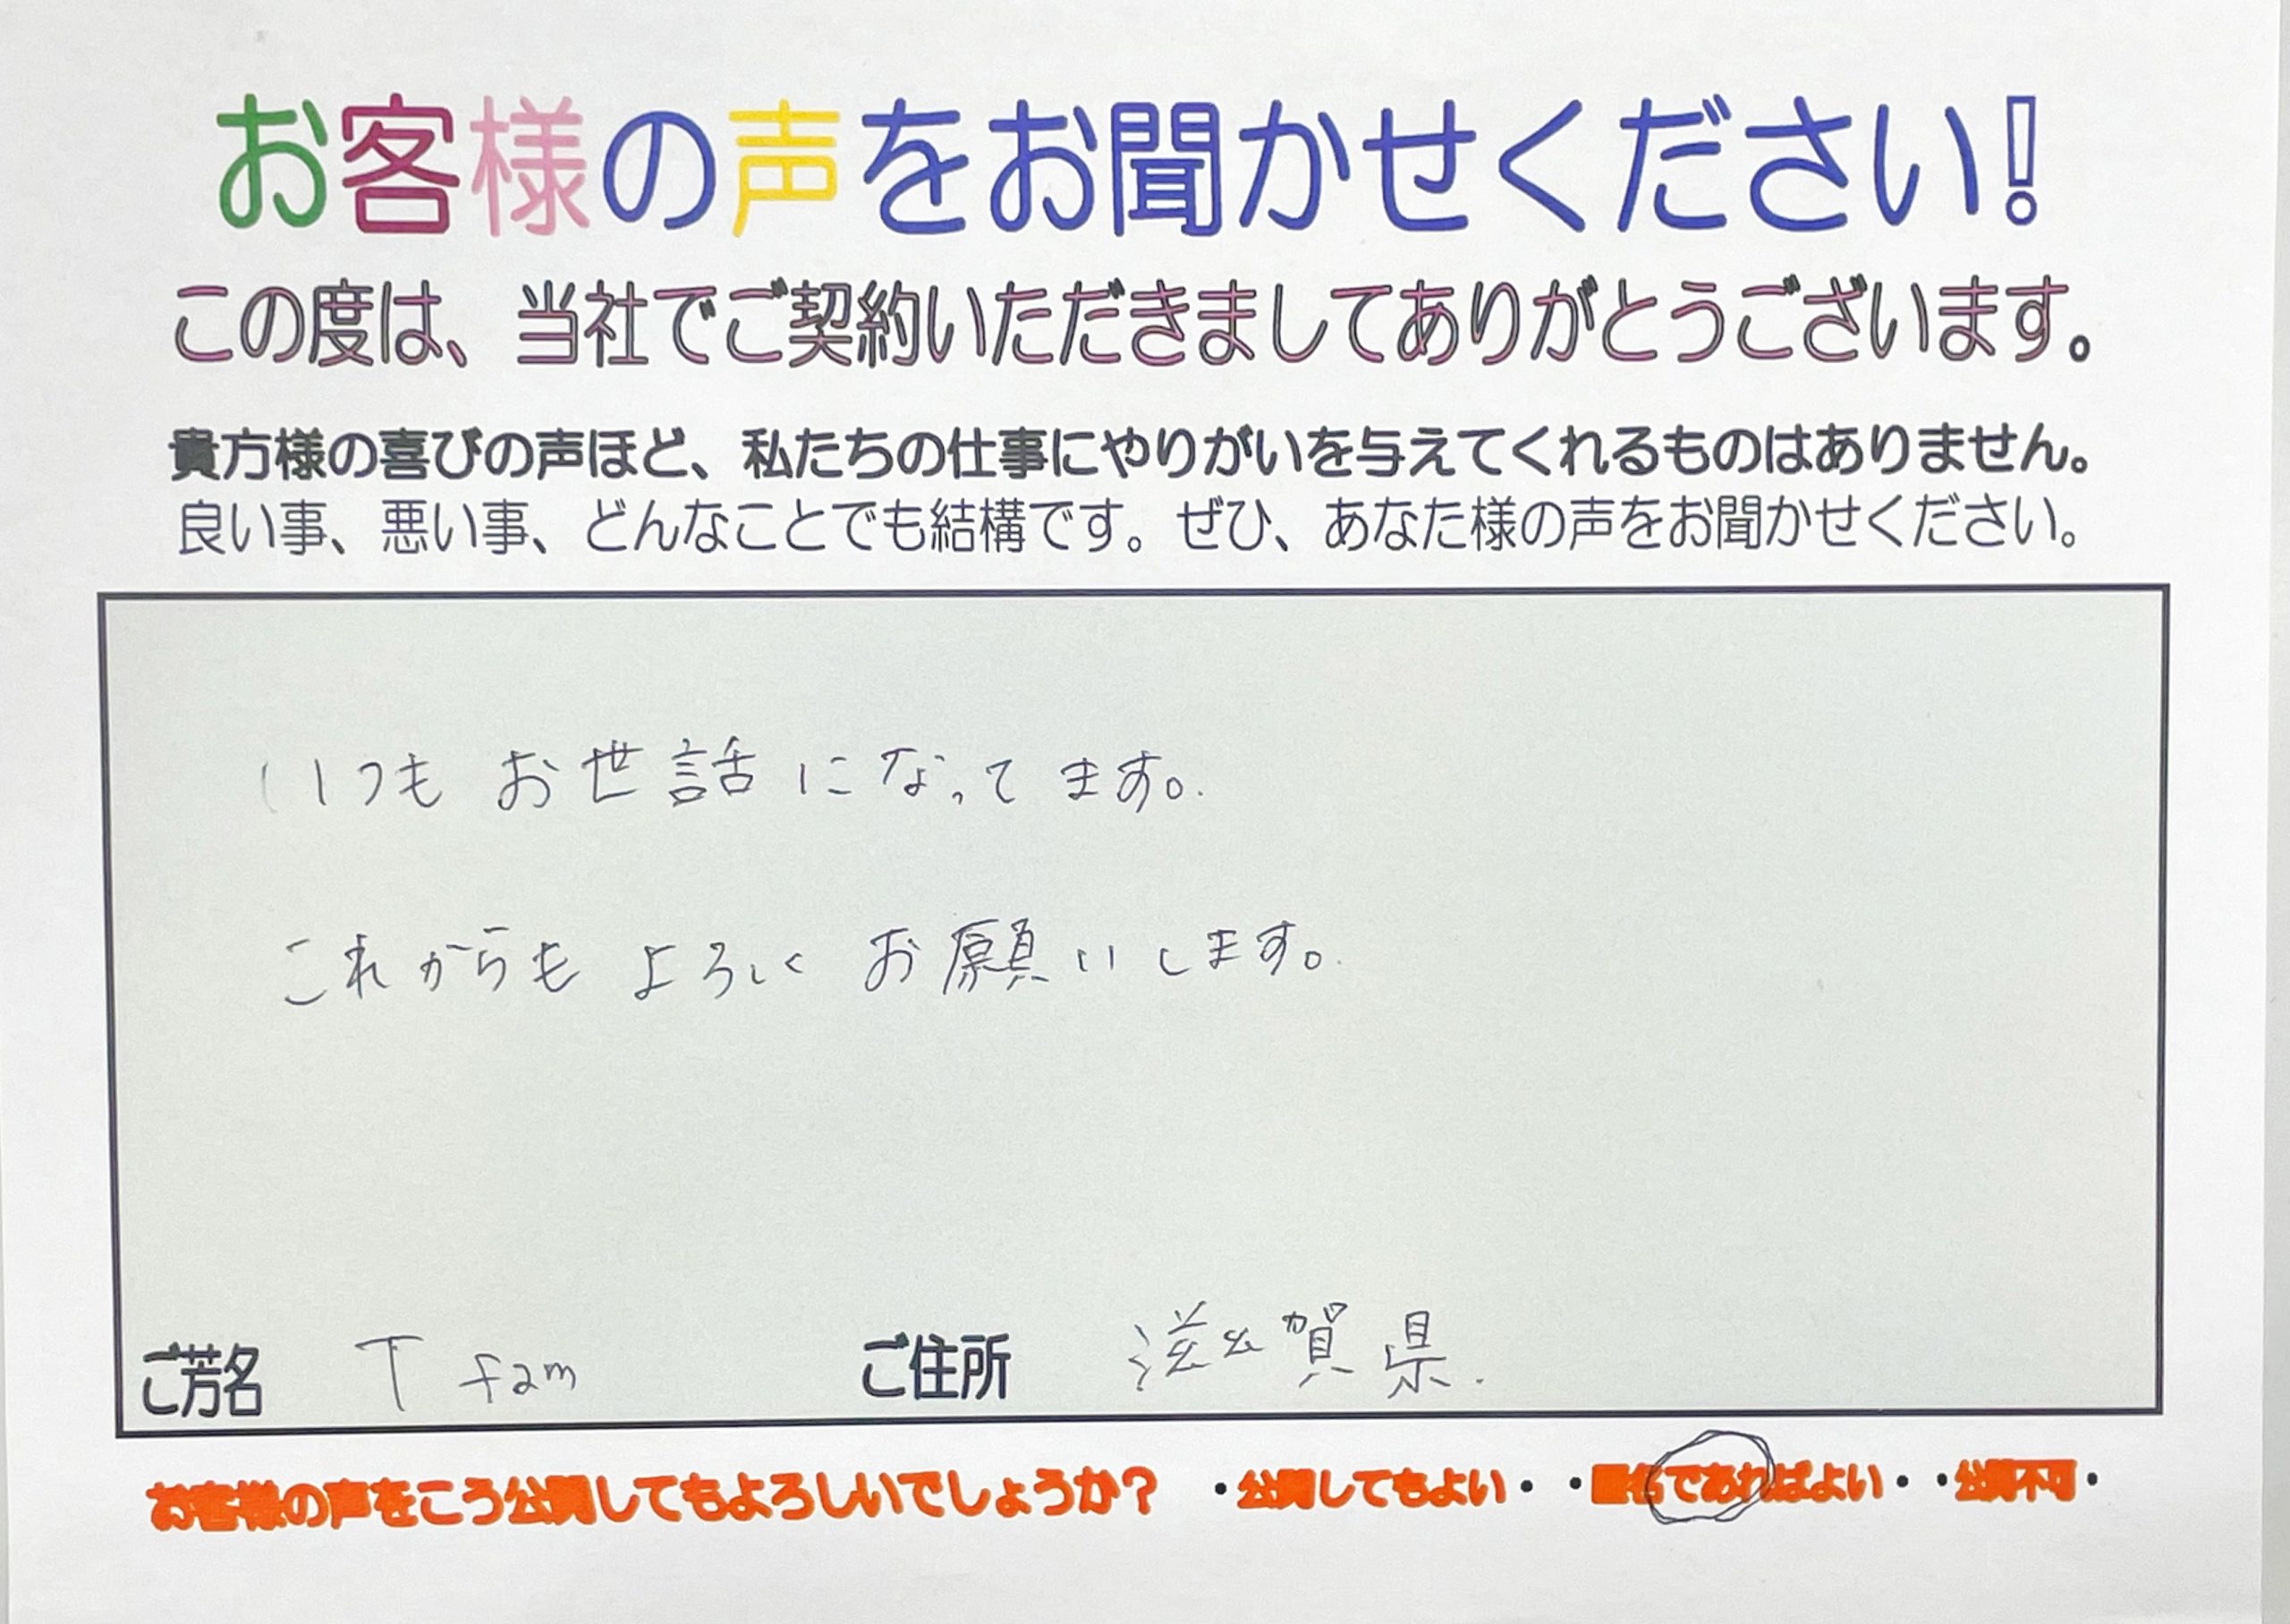 お客様の声をお聞かせください!
この度は、当社でご契約いただきましてありがとうございます。
貴方様の喜びの声ほど、私たちの仕事にやりがいを与えてくれるものはありません。
良い事、悪い事、どんなことでも結構です。ぜひ、あなた様の声をお聞かせください。
いつもお世話になってます。
これからもよろしくお願いします。
ご芳名 T fam ご住所 滋賀県.
お客様の声をこう公開してもよろしいでしょうか? ・公開してもよい・ ・匿名であればよい・ ・公開不可・